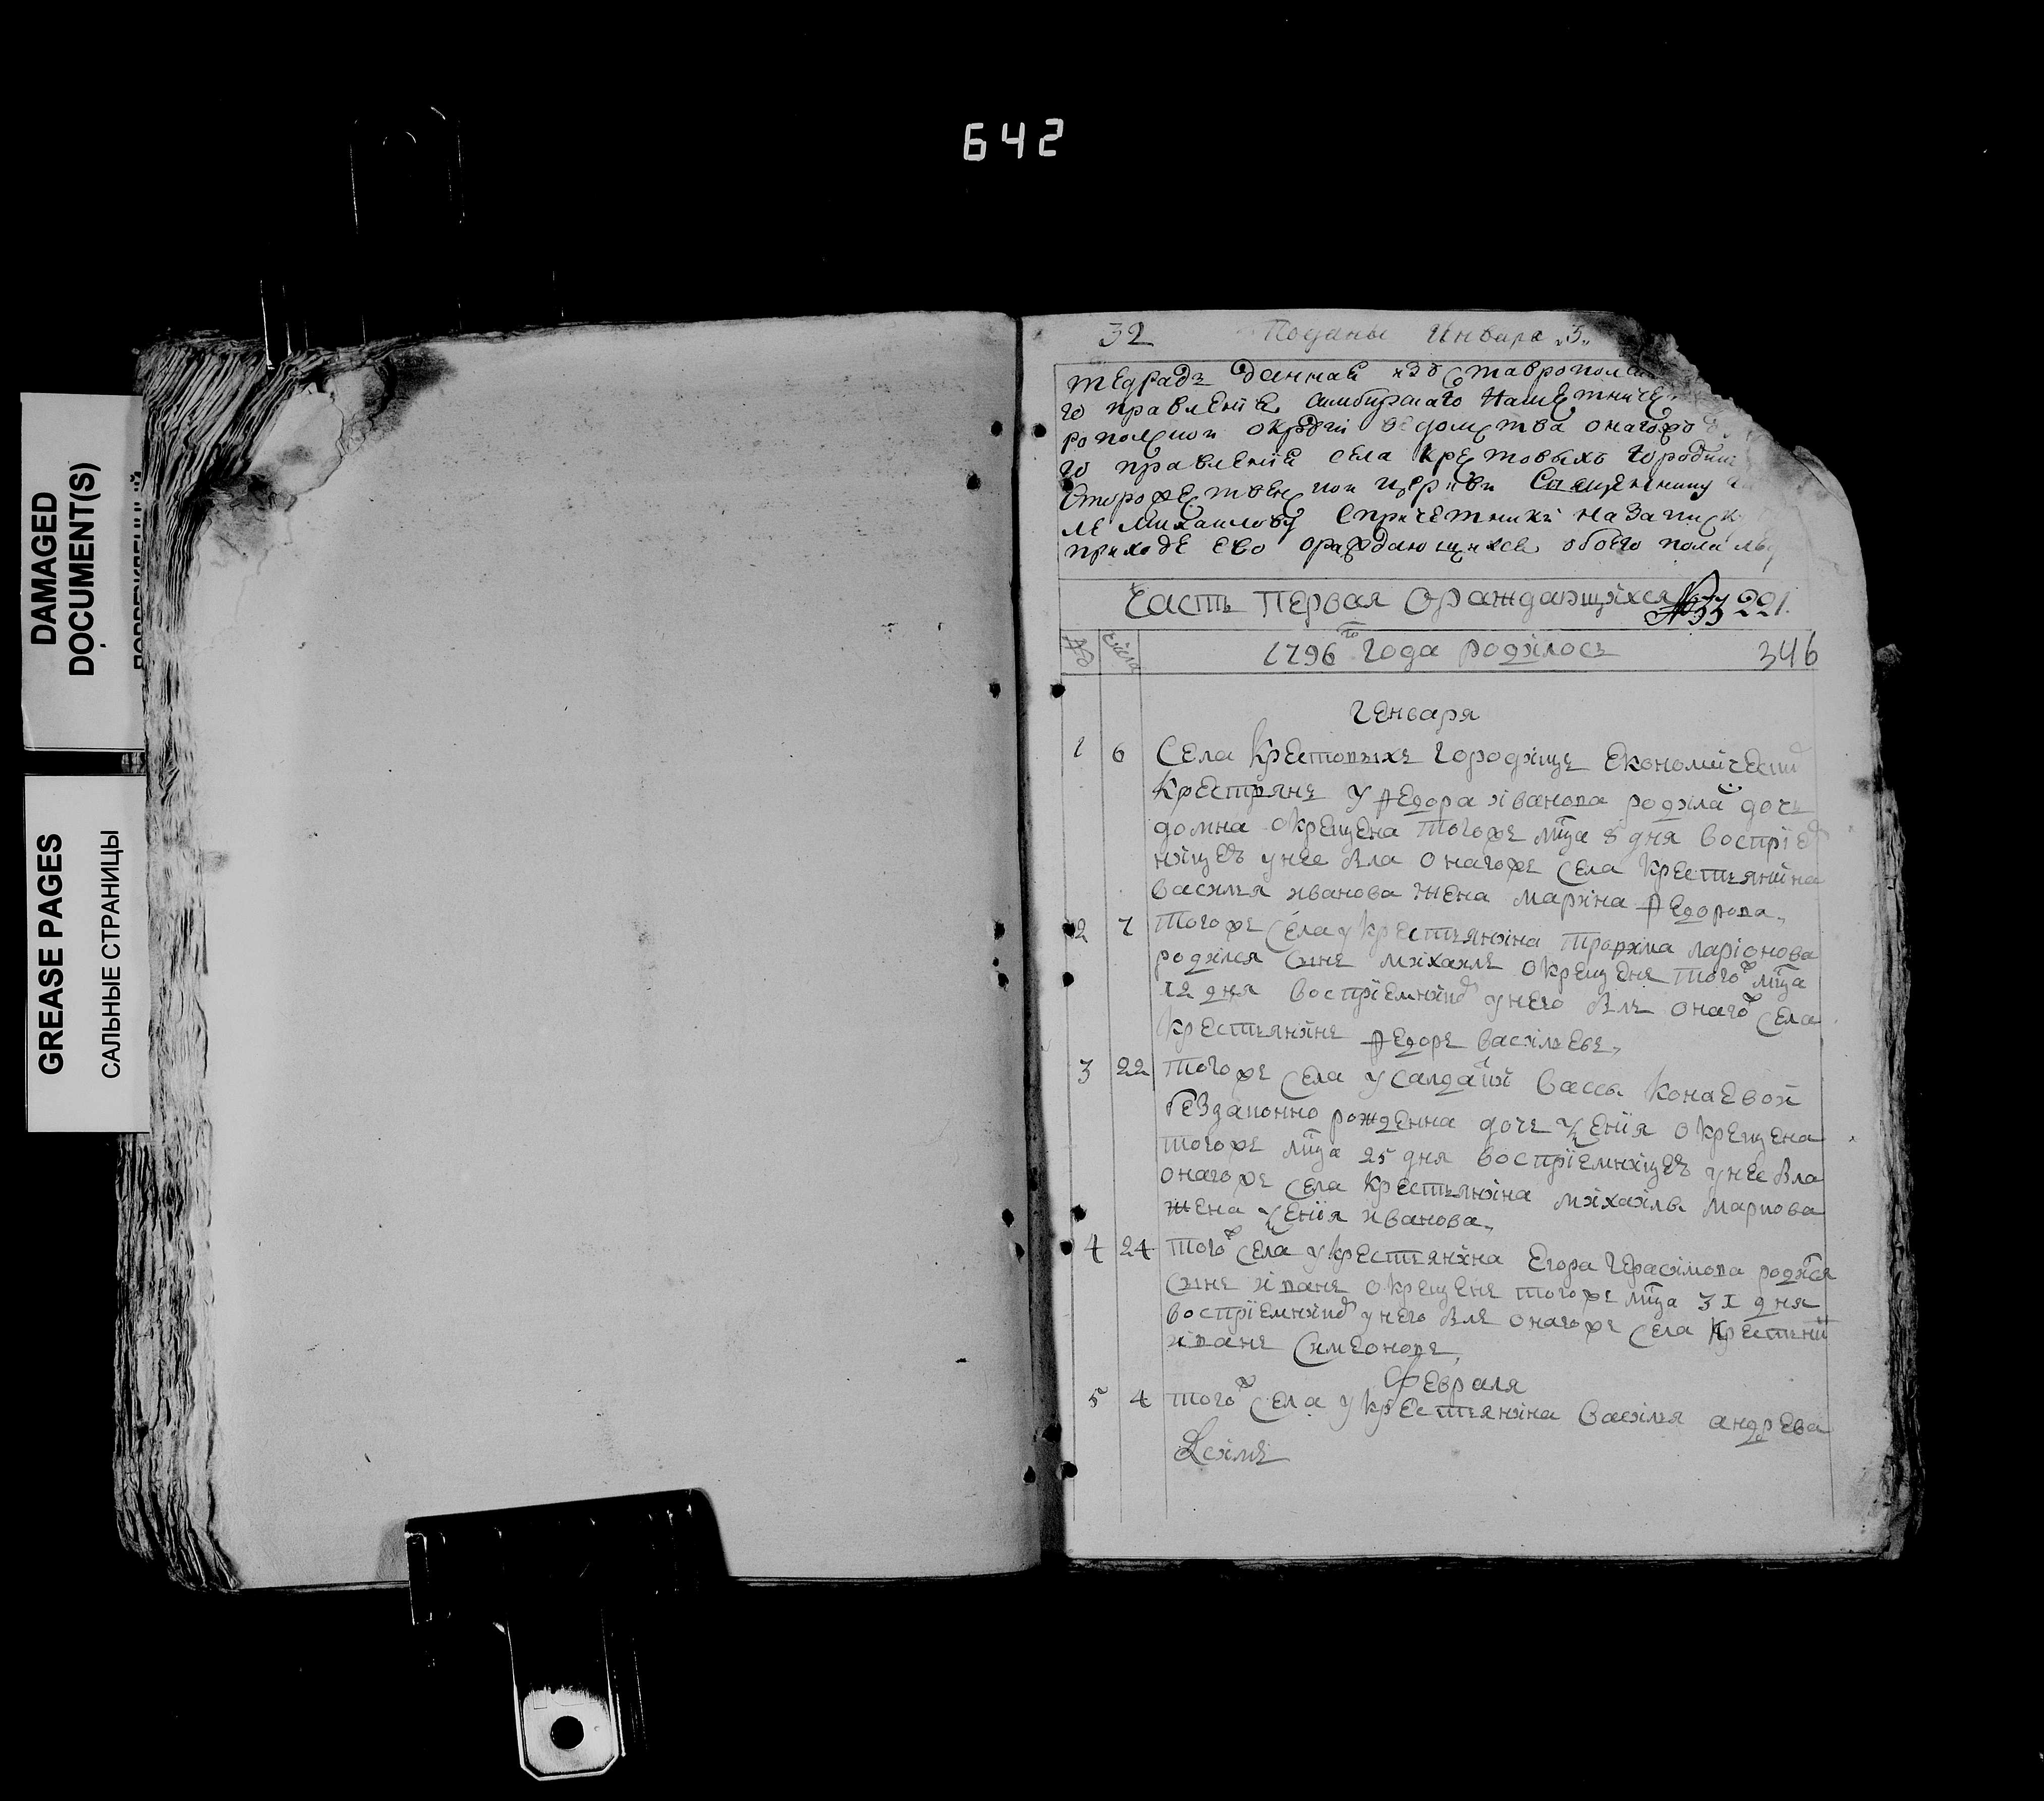 642
DAMAGED
DOCUMENT(S)
GREASE PAGES
САЛЬНЫЕ СТРАНИЦЫ
32 Поданы Генваря „5„
тедрадь данная изъ Ставрополь
го правления Симбирскаго намѣстниче
ропольской округи ведомства онагожъ
го правления села Крестовыхъ Городищ
Священнику
ле Михаилову спричетники на записк
приходе ево ораждающихся обоего пола
Часть первая ораждающихся 221.
№ числа 1796 го Года родилось 346
Генваря
1 6 Села Крестовыхъ Городищь Економическ
крестьянъ у Ѳедора Иванова родила дочь
домна окрещена тогоже мца 8 дня воспрiем
ницею унее была онагоже села крестьянина
василья иванова жена марина Ѳедорова,
2 7 тогоже села у крестьянина трофима ларiонова
родился сынъ михаилъ окрещенъ тогож мца
12 дня воспрiемник унего былъ онагож села
крестьянинъ Ѳедоръ васильевъ,
3 22 тогоже села у салдатки вассы конаевой
беззаконно рожденна дочь ѯенiя окрещена
тогоже мца 25 дня воспрiемницею унее была
онагоже села крестьянина михаилы маркова
жена ѯенiя иванова,
4 24 тогож села у крестьянина Егора Герасимова родился
сынъ иванъ окрещенъ тогоже мца 31 дня
воспрiемник унего былъ онагоже села крестьнинъ
иванъ симеоновъ,
Февраля
5 4 тогож села у крестьянина василья андрева